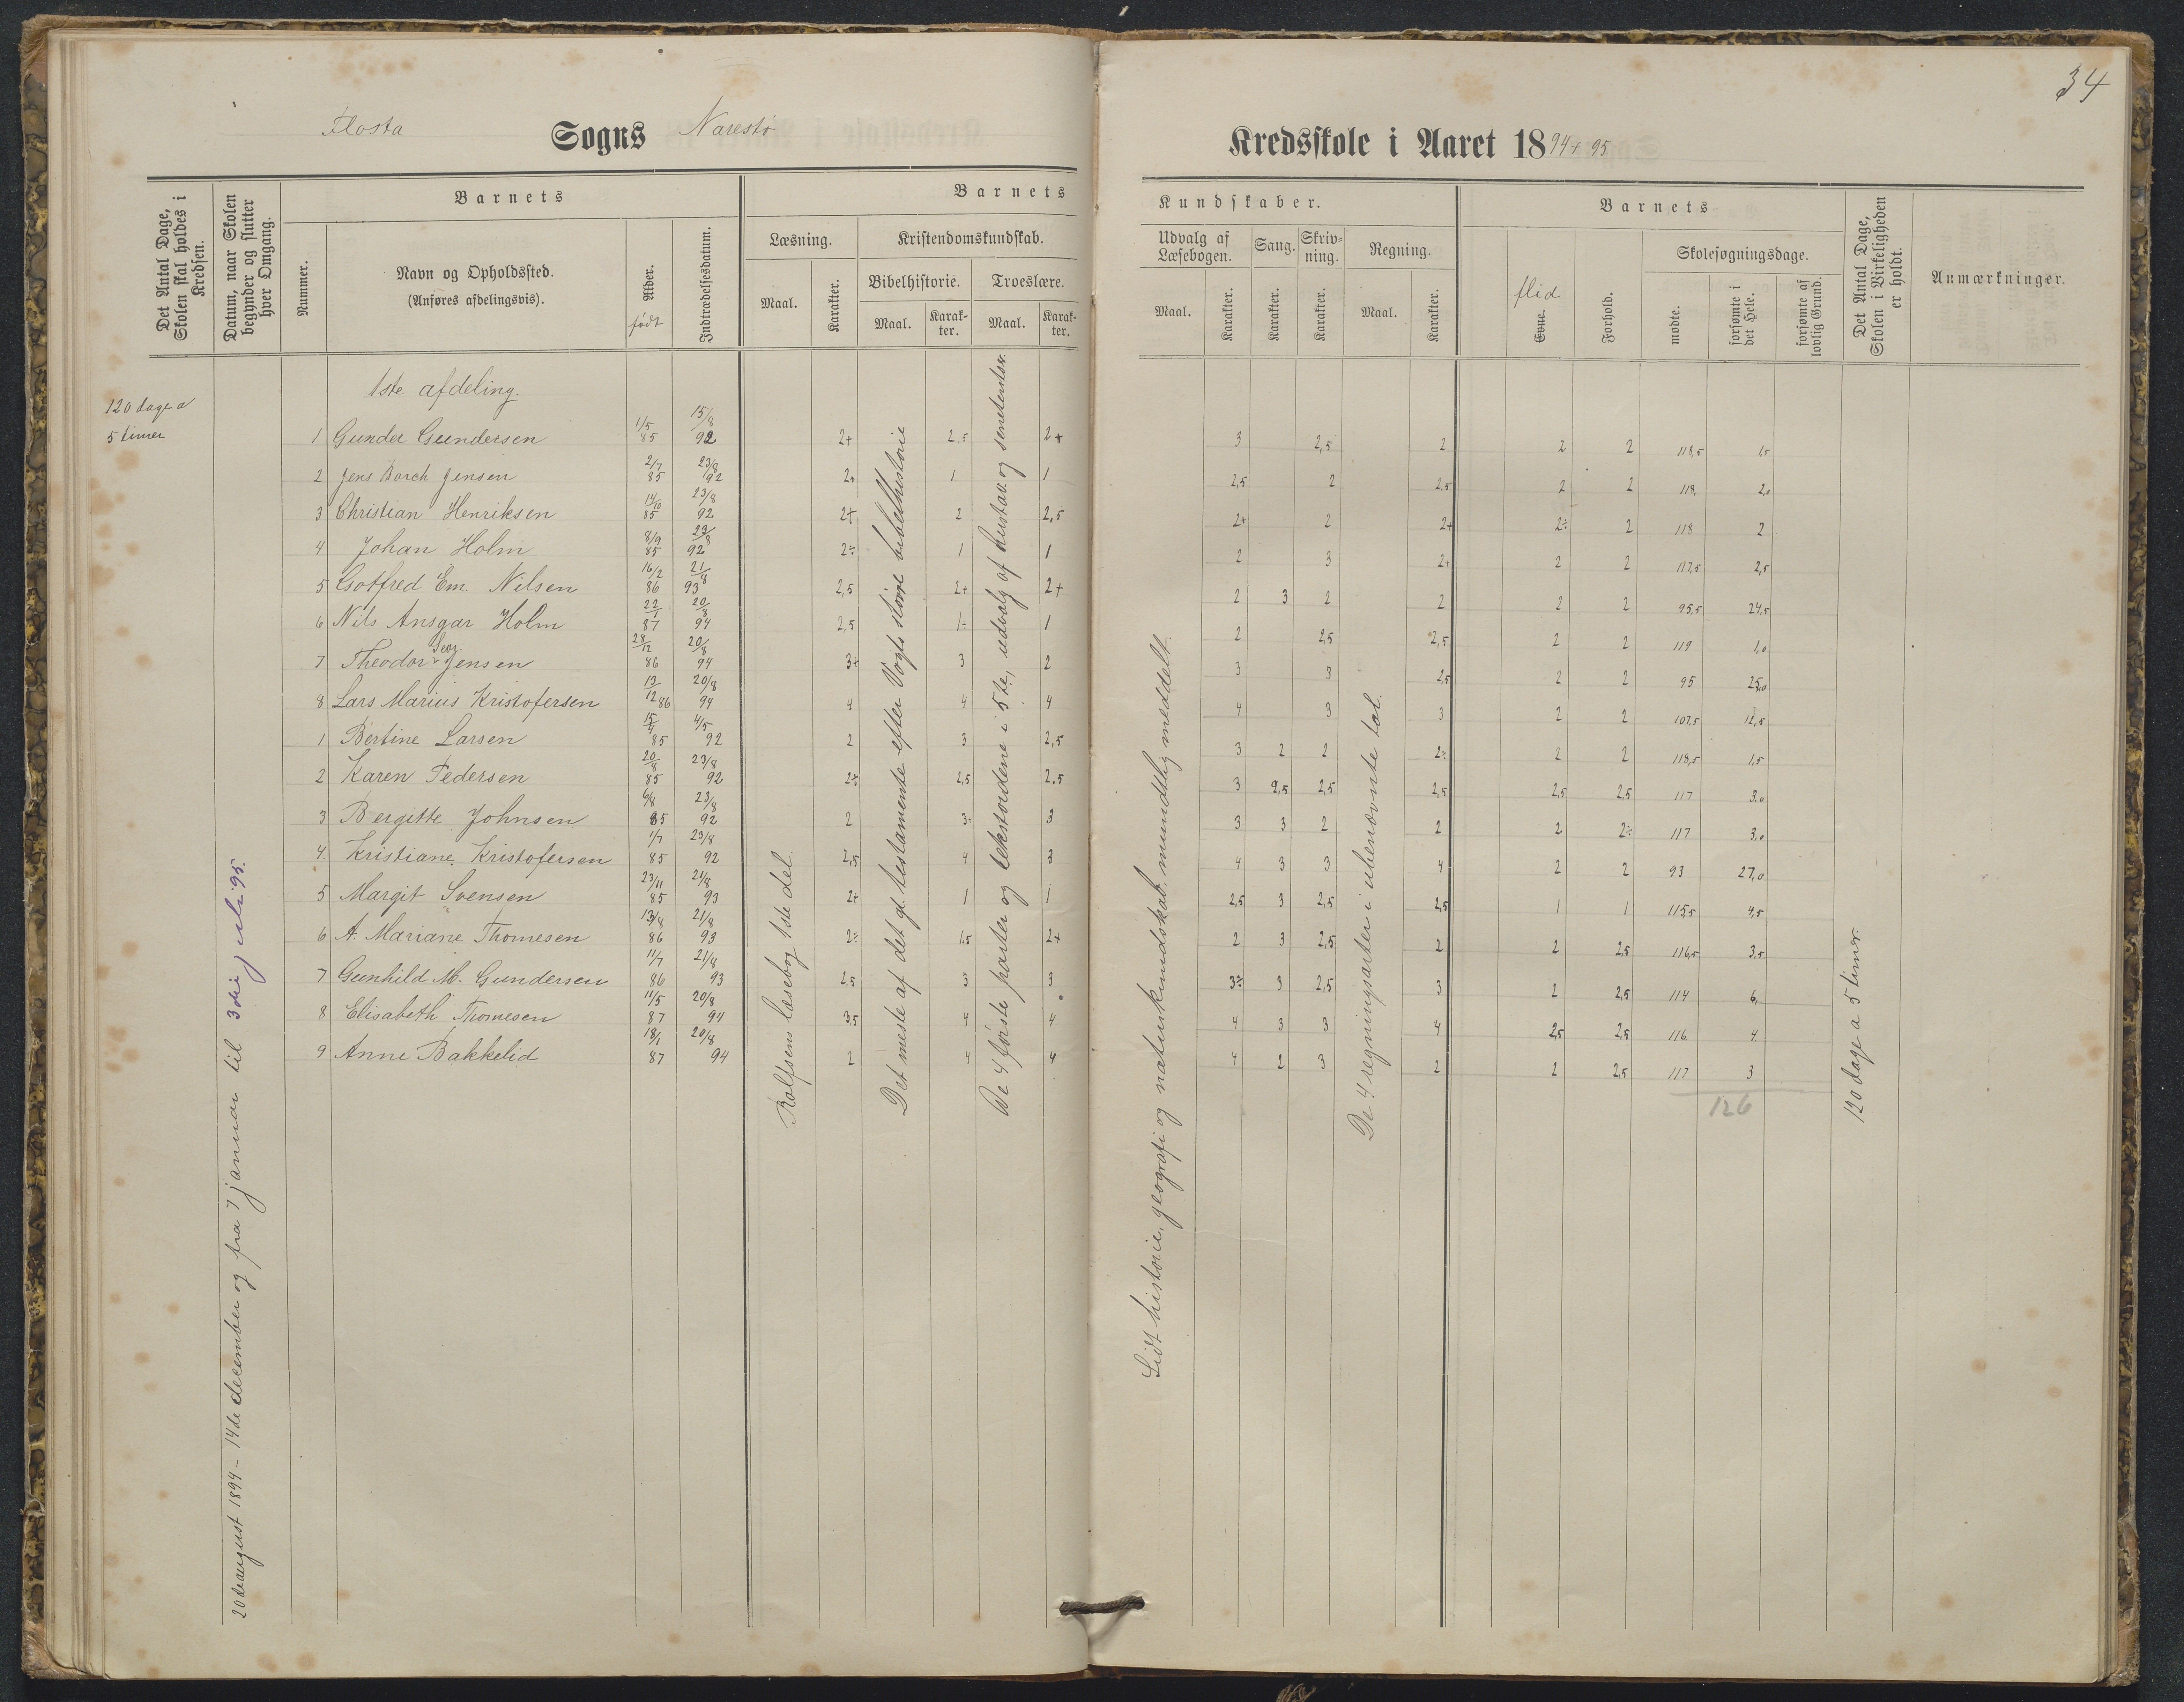 34
Flosta Sogns Narestø Kredsskole i Aaret 1894+95.
Det Antal Dage, Skolen skal holdes i Kredsen.
Datum, naar Skolen begynder og slutter hver Omgang.
Barnets
Nummer.
Navn og Opholdssted.
(Anføres afdelingsvis).
Alder.
født
Indtrædelsesdatum.
Barnets Kundskaber.
Læsning.
Maal.
Karakter.
Kristendomskundskab.
Bibelhistorie.
Maal.
Karakter.
Troeslære.
Maal.
Karakter.
Udvalg af Læsebogen.
Maal.
Karakter.
Sang.
Karakter.
Skrivning.
Karakter.
Regning.
Maal.
Karakter.
Barnets
flid
Evne.
Forhold.
Skolesøgningsdage.
mødte.
forsømte i det Hele.
forsømte af lovlig Grund.
Det Antal Dage, Skolen i Virkeligheden er holdt.
Anmærkninger.
120 dage a
5 timer
20de august 1894 - 14de december og fra 7 januar til 3die juli 95.
1ste afdeling.
1 Gunder Gundersen 1/5 85 15/8 92 2+ 2.5 2+ 3 2,5 2 2 2 118,5 1,5
2 Jens Borch Jensen 2/7 85 23/8 92 1 1 2,5 2 2,5 2 2 118, 2,0
3 Christian Henriksen 14/10 85 23/8 92 2+ 2 2.5 2+ 2 2+ 2÷ 2 118 2
4 Johan Holm 8/9 85 23/8 92 2÷ 1 1 2 3 2+ 2 2 117,5 2,5
5 Gotfred Em. Nilsen 16/2 86 21/8 93 2,5 2+ 2+ 2 3 2 2 2 2 95,5 24,5
6 Nils Ansgar Holm 22/1 87 20/8 94 2,5 1÷ 1 2 2,5 2,5 2 2 119 1,0
7 Theodor Geor. Jensen 28/12 86 20/8 94 3+ 3 2 3 3 2,5 2 2 95 25,0
8 Lars Marius Kristofersen 13/12 86 20/8 94 4 4 4 4 3 3 2 2 107,5 12,5
1 Bertine Larsen 15/4 85 4/5 92 2 3 2,5 3 2 2 2÷ 2 2 118,5 1,5
2 Karen Pedersen 20/8 85 23/8 92 2÷ 2,5 2.5 3 2,5 2,5 2,5 2,5 2,5 117 3,0
3 Bergitte Johnsen 6/8 85 23/8 92 2 3+ 3 3 3 2 2 2 2÷ 117 3,0
4. Kristiane Kristofersen 1/7 85 23/8 92 2,5 4 3 4 3 3 4 2 2 93 27,0
5 Margit Svensen 23/11 85 21/8 93 2+ 1 1 2,5 3 2,5 2,5 1 1 115,5 4,5
6 A. Mariane Thomesen 13/8 86 21/8 93 2÷ 1,5 2+ 2 3 2,5 2 2 2,5 116,5 3,5
7 Gunhild M. Gundersen 11/7 86 21/8 93 2,5 3 3 3÷ 3 2,5 3 2 2,5 114 6,
8 Elisabeth Thomesen 11/5 87 20/8 94 3,5 4 4 4 3 3 4 2,5 2,5 116 4
9 Anne Bakkelid 18/1 87 20/8 94 2 4 4 4 2 3 2 2 2,5 117 3
126
Rolfsens læsebog 1ste del.
Det meste af det gl. testamente efter Vogts større bibelhistorie
De 4 første parter og tekstordene i 5te, udvalg af hustav. og senetentser.
Lidt historie, geografi og naturkundskab mundtlig meddelt.
De 4 regningsarter i ubenævnte tal.
120 dage a 5 timer.